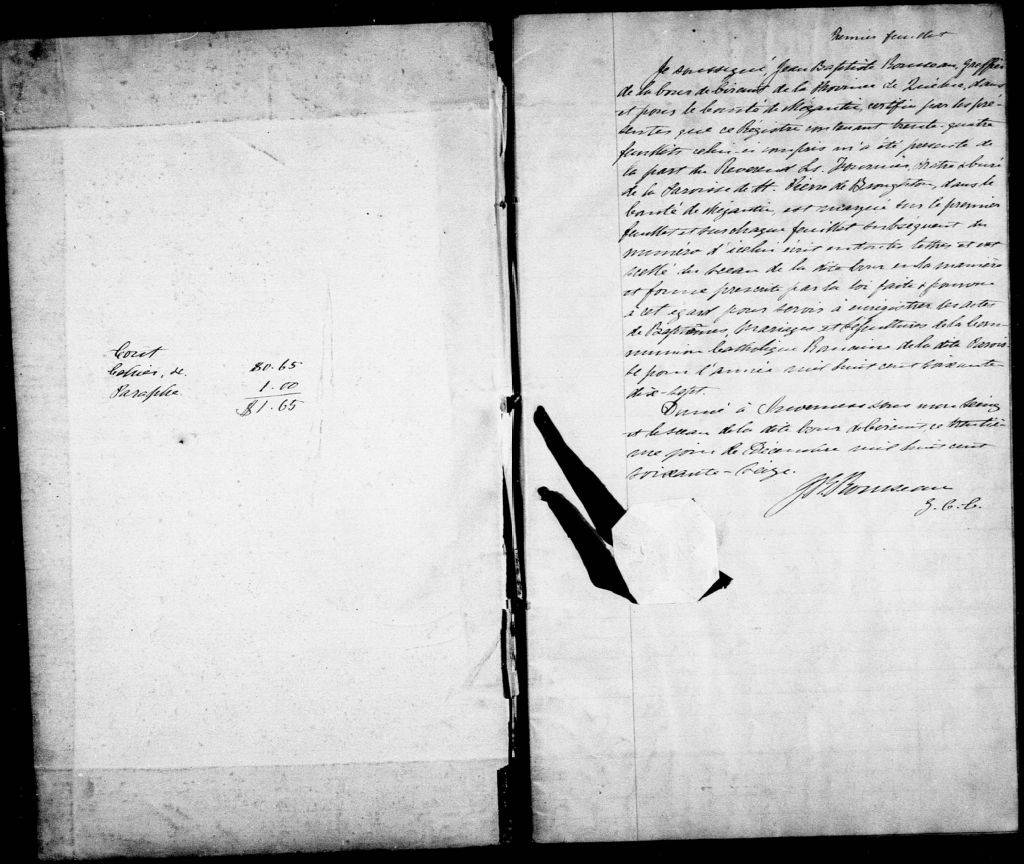 Cout
Cahier, de. $0.65
Paraphe 1.00
$1.65
Premier feuillet
Je soussigné, Jean Baptiste Rousseau, Greffier
de la Cour de Circuit de la Province de Québec, dans
et pour le Comté de Mégantic certifie par les pré-
sentes que ce Régistre contenant trente-quatre
feuillets celui-ci compris m'a été présenté de
la part du Reverend Ls. Fournier, Ptre & Curé
de la Paroisse de St. Pierre de Broughton, dans le
Comté de Mégantic, est marqué sur le premier
feuillet et sur chaque feuillet subséquent du
numéro d'icelui écrit en toutes lettres et est
scellé du sceau de la dite Cour en la manière
et forme prescrite par la loi faite & pourvue
à cet égard pour servir à enregistrer les actes
de Baptêmes, Mariages et Sépultures de la Com-
munion Catholique Romaine de la dite Parois-
se pour l'année mil huit cent soixante
dix-sept.
Donné à Inverness sous mon seing
et le sceau de la dite Cour de Circuit, ce trentiè-
me jour de Décembre mil huit cent
soixante-seize.
JBRousseau
G.C.C.